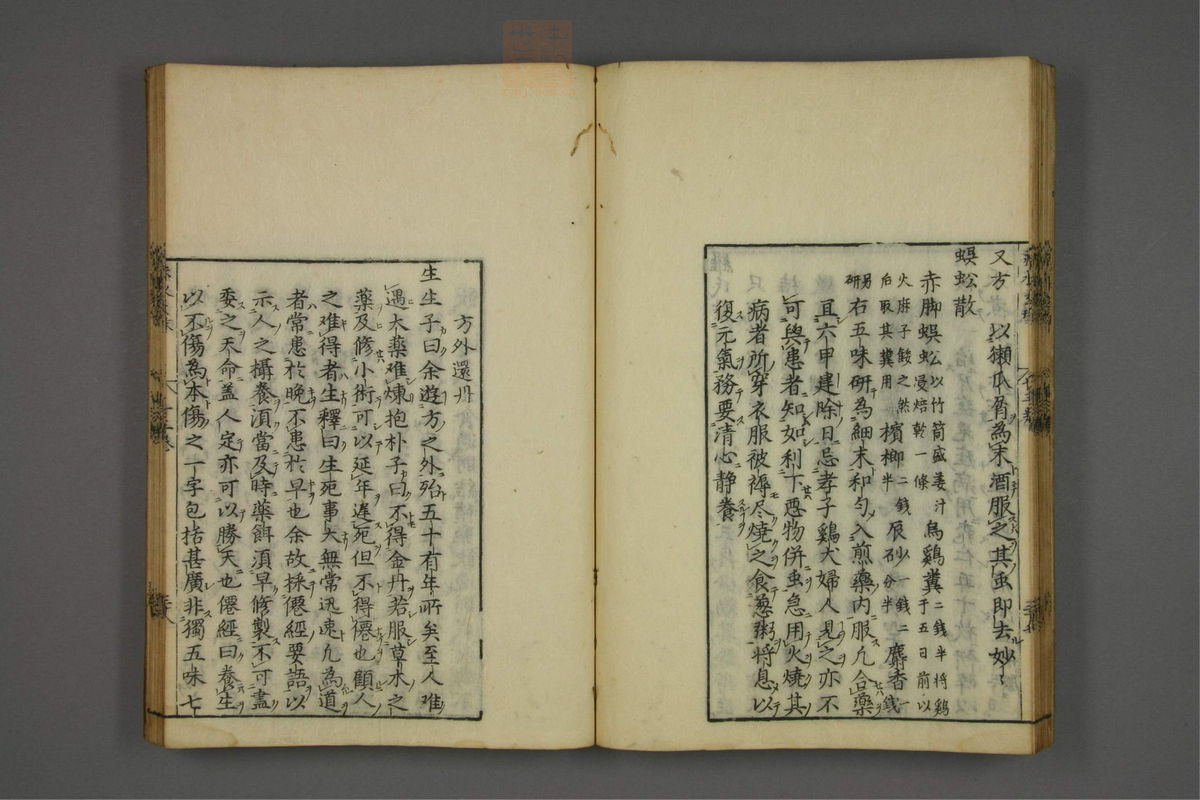 又方 以獺爪屑為末酒服之其虫即去妙〻
蜈蚣散
赤脚蜈蚣以竹筒盛姜汁浸焙乾一條 烏鷄糞二錢半将鷄于五日前以
火麻子餧之然后取其糞用 檳榔二錢半 辰砂一錢二分半 麝香一錢
另研 右五味研為細末和勻入煎藥内服凡合藥
宜六甲建除日忌孝子鷄犬婦人見之亦不
可與患者知如利下惡物併虫急用火燒其
病者所穿衣服被褥尽燒之食葱粥将息以
復元氣務要清心静養
方外還丹
生生子曰余遊方之外殆五十有年所矣至人难
遇大藥难煉抱朴子曰不得金丹若服草木之
藥及修小術可以延年遅死但不得僊也顧人
之难得者生釋曰生死事大無常迅速凡為道
者常患於晚不患於早也余故採僊經要語以
示人之攝養湏當及時藥餌湏早修製不可盡
委之天命盖人定亦可以勝天也僊經曰養生
以不傷為本傷之一字包括甚廣非獨五味七